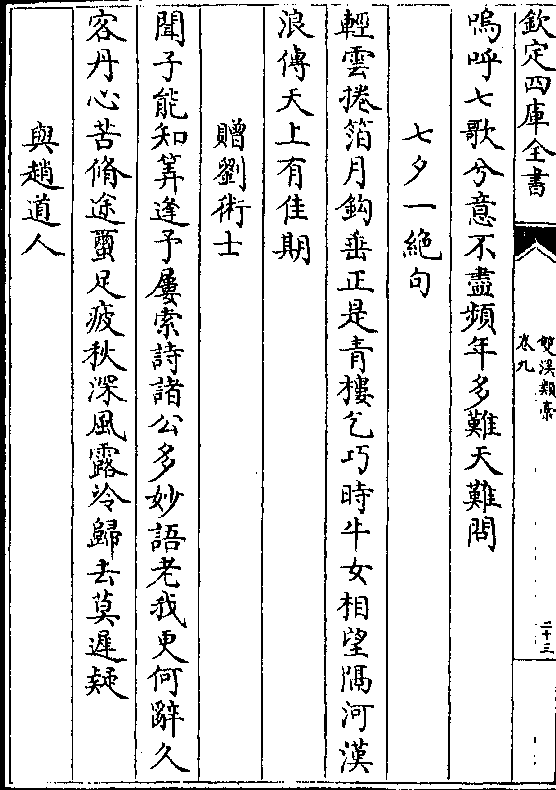 欽定四庫全書
雙溪類藁
卷九
二十三
嗚呼七歌兮意不盡頻年多難天難問
七夕一絶句
輕雲捲箔月鈎垂正是青樓乞巧時牛女相望隔河漢
浪傳天上有佳期
贈劉術士
聞子能知筭逢予屢索詩諸公多妙語老我更何辭久
客丹心苦脩途蠒足疲秋深風露冷歸去莫遲疑
與趙道人